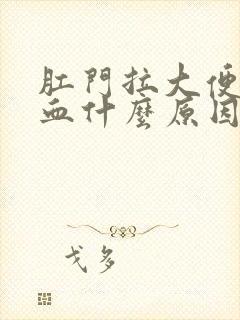 肛門拉大便
血什麼原因
戈多